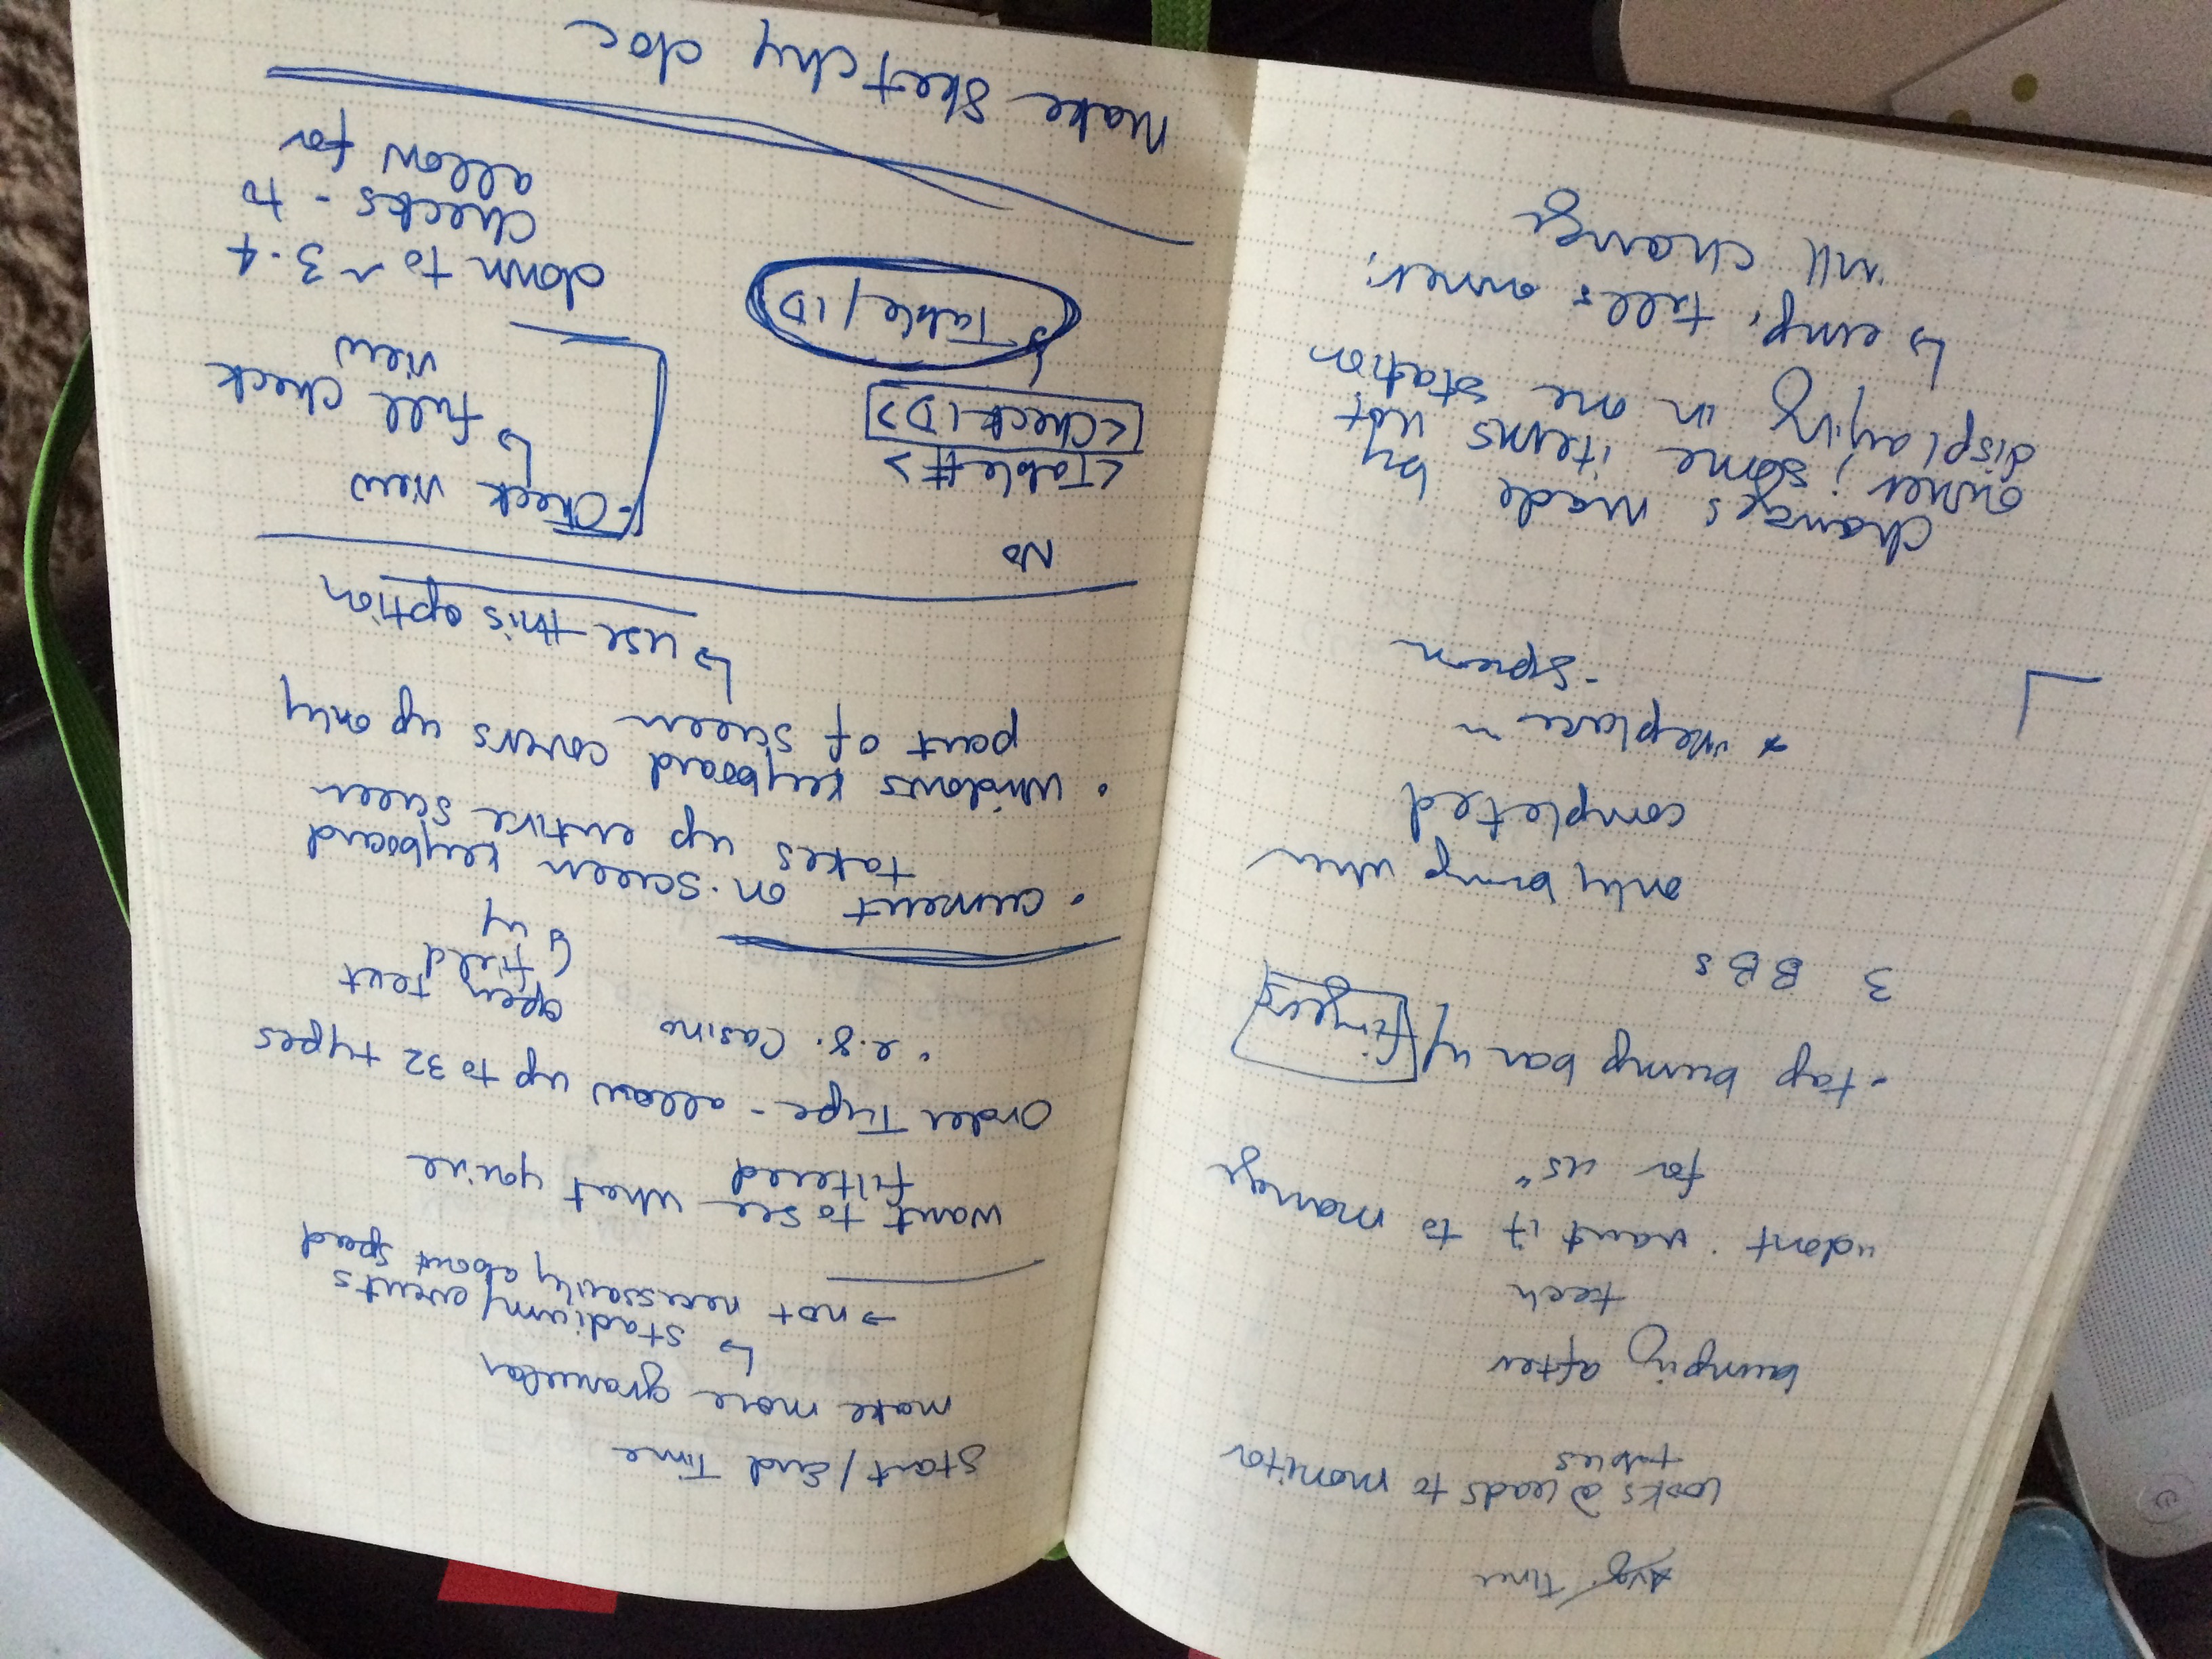 Avg. Time
Looks @ leads to monitor
tables
bumping after
tech
"don't want it to manage
for us"
- tap bump bar w/ fingers
3 BBs
only bump when
completed
* replace in
- spcom
changes made by
owner; some items not
displaying in one station
↳ emp. tells owner;
will change
Start/End Time
make more granular
↳ stadium/events
→ not necessarily about speed
want to see what you've
filtered
Order Type - allow up to 32 types
• e.g. Casino
open text
field
• current on-screen keyboard
takes up entire screen
• windows keyboard covers up only
part of screen
↳ use this option
No
<Table#>
<Check ID>
↳ Table/ID
- Check view
↳ full check
view
down to ~3-4
checks - to
allow for
Make Sketchy doc